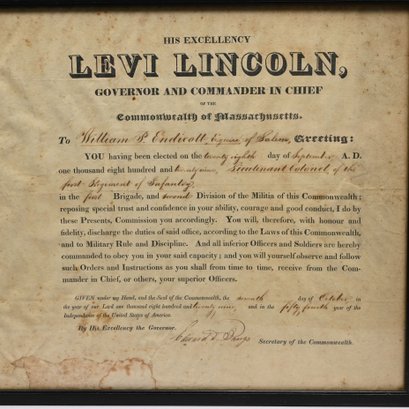 HIS EXCELLENCY
LEVI LINCOLN,
GOVERNOR AND COMMANDER IN CHIEF
OF THE
Commonwealth of Massachusetts.
To William P. Endicott, Esquire of Salem, Greeting:
YOU having been elected on the twenty eighth day of September A. D.
one thousand eight hundred and twenty nine, Lieutenant Colonel of the
first Regiment of Infantry,
in the first Brigade, and second Division of the Militia of this Commonwealth;
reposing special trust and confidence in your ability, courage and good conduct, I do by
these Presents, Commission you accordingly. You will, therefore, with honour and
fidelity, discharge the duties of said office, according to the Laws of this Commonwealth,
and to Military Rule and Discipline. And all inferior Officers and Soldiers are hereby
commanded to obey you in your said capacity; and you will yourself observe and follow
such Orders and Instructions as you shall from time to time, receive from the Com-
mander in Chief, or others, your superior Officers.
GIVEN under my Hand, and the Seal of the Commonwealth, the seventh day of October in
the year of our Lord one thousand eight hundred and twenty nine and in the fifty fourth year of the
Independence of the United States of America.
By His Excellency the Governor.
Edward D. Bangs
Secretary of the Commonwealth.